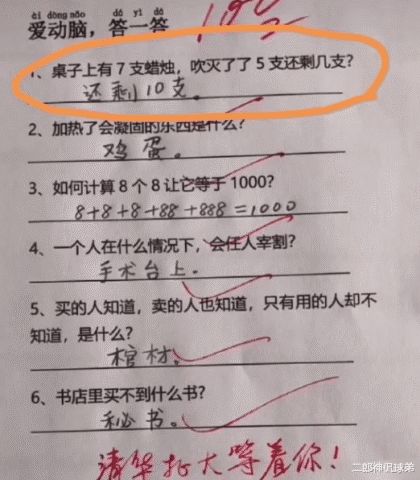 ài dòng nǎo dá yì dá
爱动脑，答一答
1、桌子上有7支蜡烛，吹灭了了5支还剩几支？
还剩10支。
2、加热了会凝固的东西是什么？
鸡蛋。
3、如何计算8个8让它等于1000？
8+8+8+88+888=1000
4、一个人在什么情况下，会任人宰割？
手术台上.
5、买的人知道，卖的人也知道，只有用的人却不
知道，是什么？
棺材.
6、书店里买不到什么书？
秘书。
清华北大等着你！
二郎神侃球弟